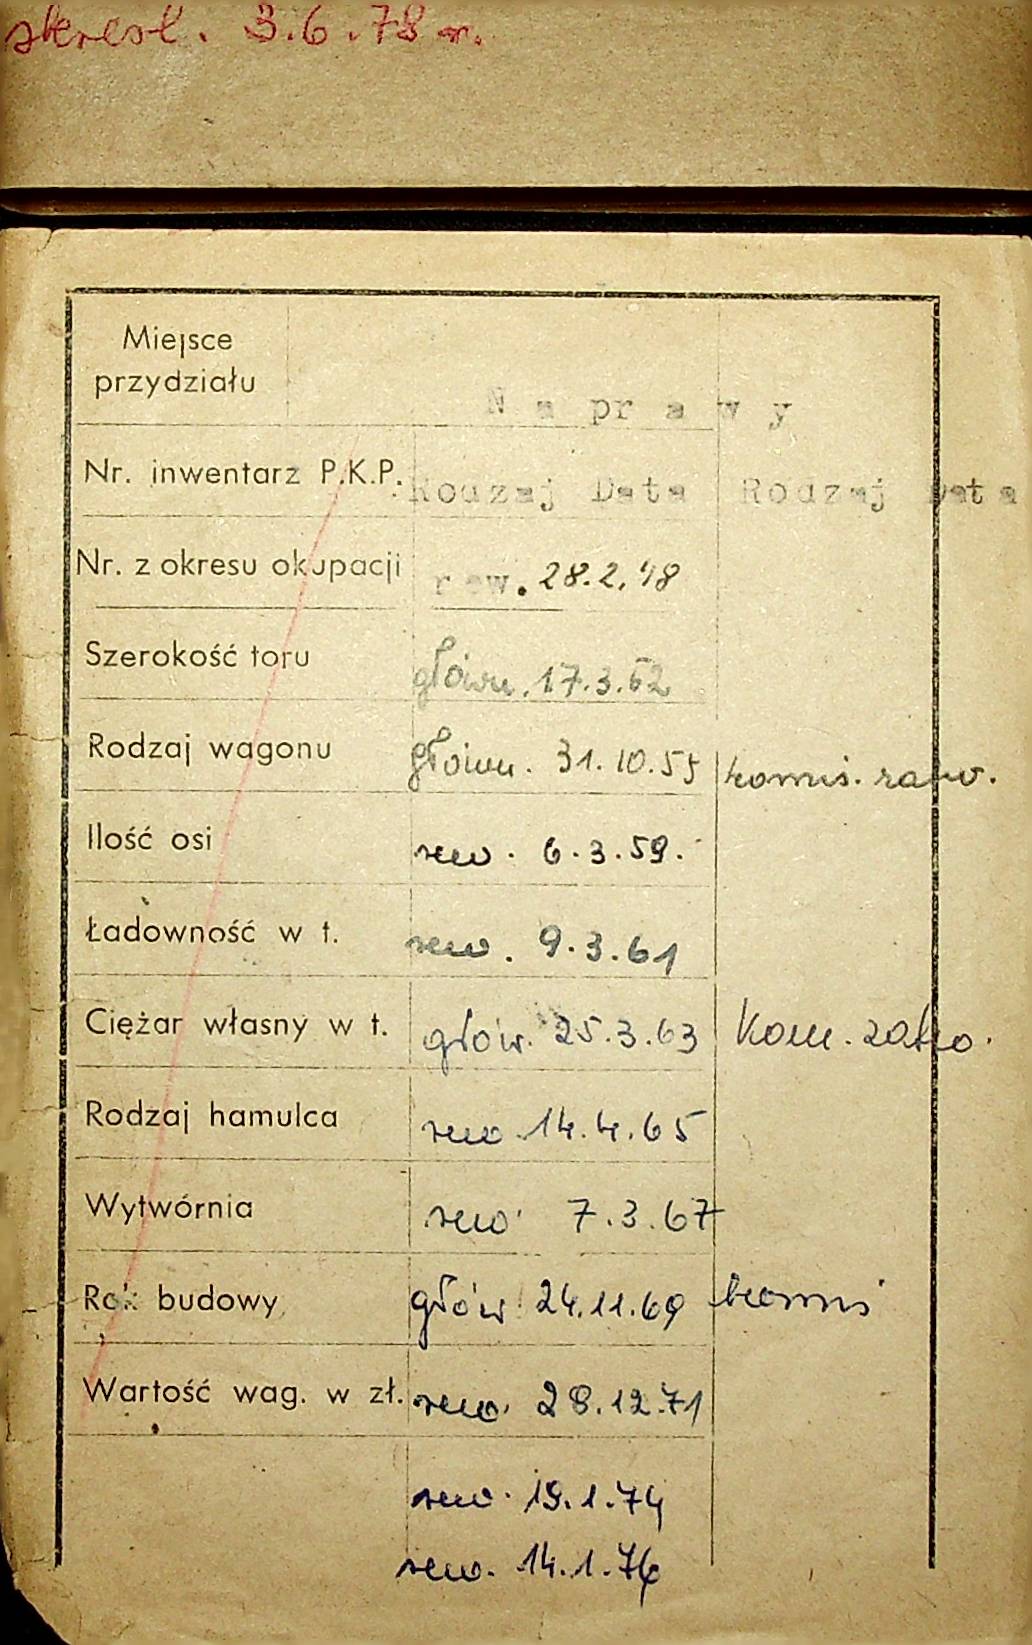 skreśl. 3.6.78 r.
Miejsce
przydziału
Naprawy
Nr. inwentarz P.K.P. Rodzaj Data Rodzaj Data
Nr. z okresu okupacji rew. 28.2.48
Szerokość toru główn. 17.3.52
Rodzaj wagonu główn. 31.10.55 komis.
Ilość osi rew. 6.3.59.
Ładowność w t. rew. 9.3.61
Ciężar własny w t. głów. 25.3.63 Kom.
Rodzaj hamulca rew 14.4.65
Wytwórnia rew. 7.3.67
Rok budowy głów. 24.11.69 komis
Wartość wag. w zł. rew. 28.12.71
rew. 19.1.74
rew. 14.1.76